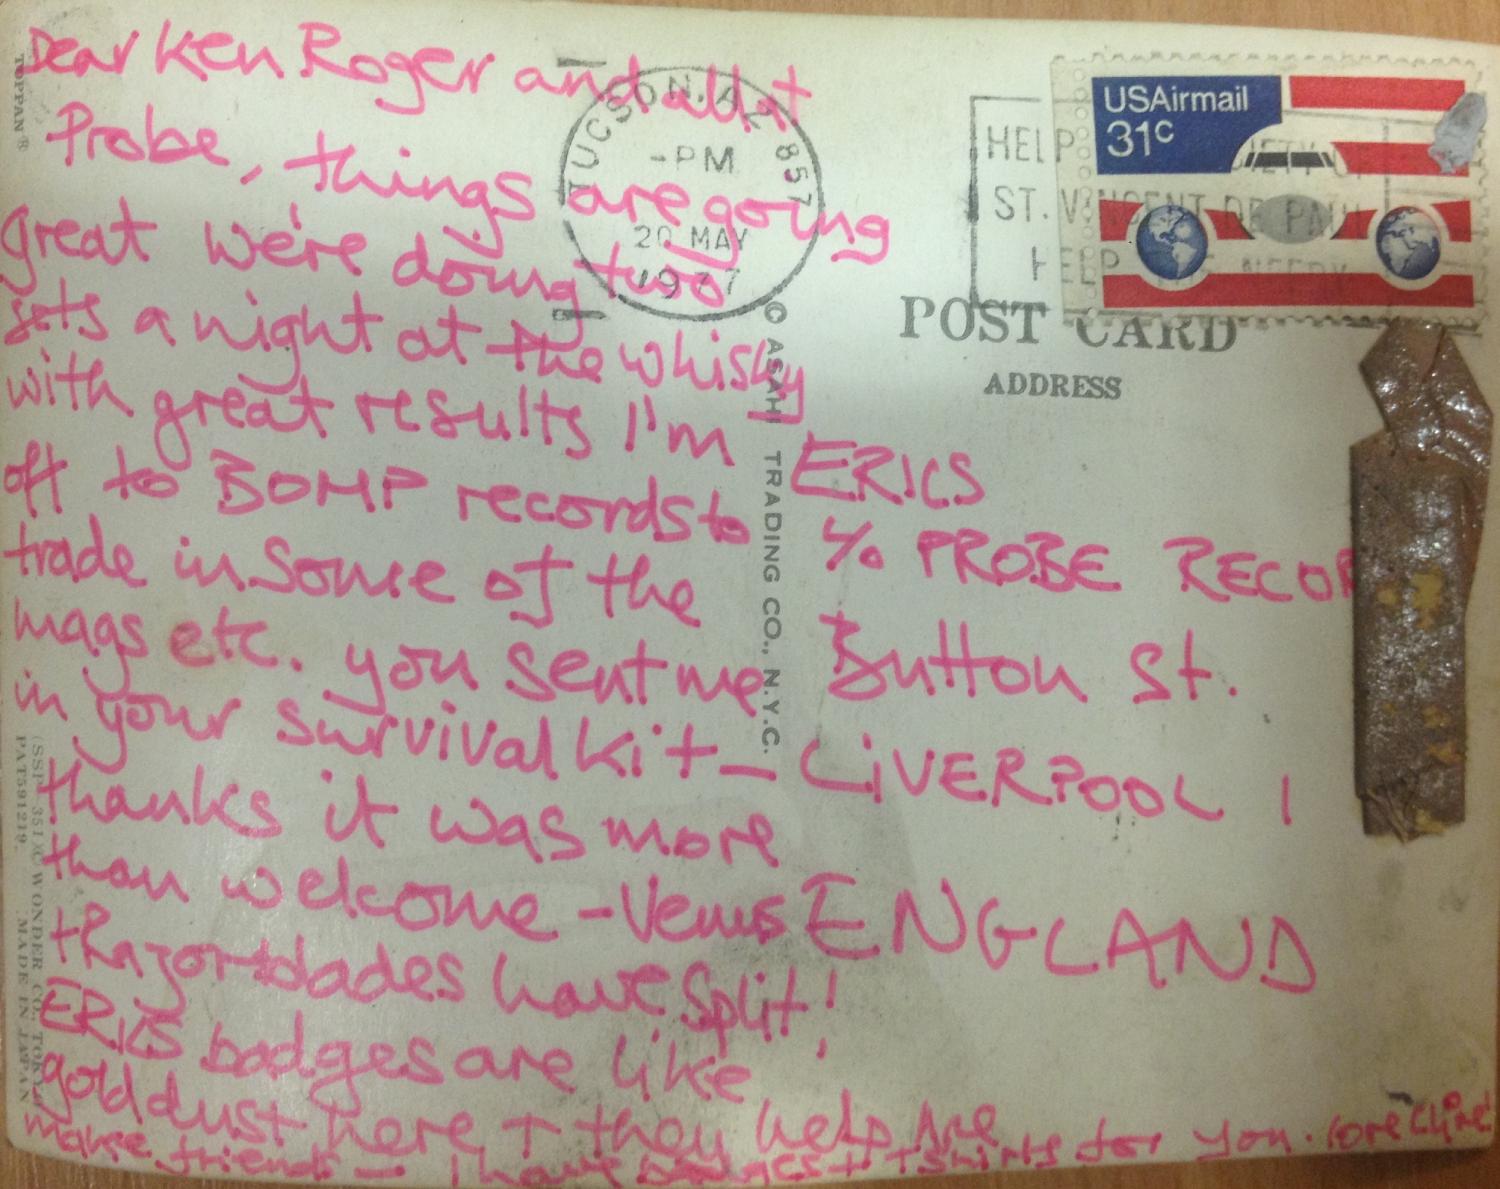 Dear Ken Roger and all at
Probe, things are going
great we're doing two
sets a night at the whisky
with great results I'm
off to BOMP records to
trade in some of the
mags etc. you sent me
in your survival kit —
thanks it was more
than welcome - Venus
+ the razorblades have split!
ERICS badges are like
gold dust here + they help me
make friends — I have badges + t shirts for you. love Clive
TUCSON, AZ 857
-PM
20 MAY
1977
HELP SOCIETY OF
ST. VINCENT DE PAUL
HELP THE NEEDY
USAirmail
31c
POST CARD
ADDRESS
ERICS
c/o PROBE RECOR
Button St.
LIVERPOOL 1
ENGLAND
© ASAHI TRADING CO., N.Y.C.
TOPPAN ®
(SSP-351)XC WONDER CO., TOKYO
PAT591219. MADE IN JAPAN